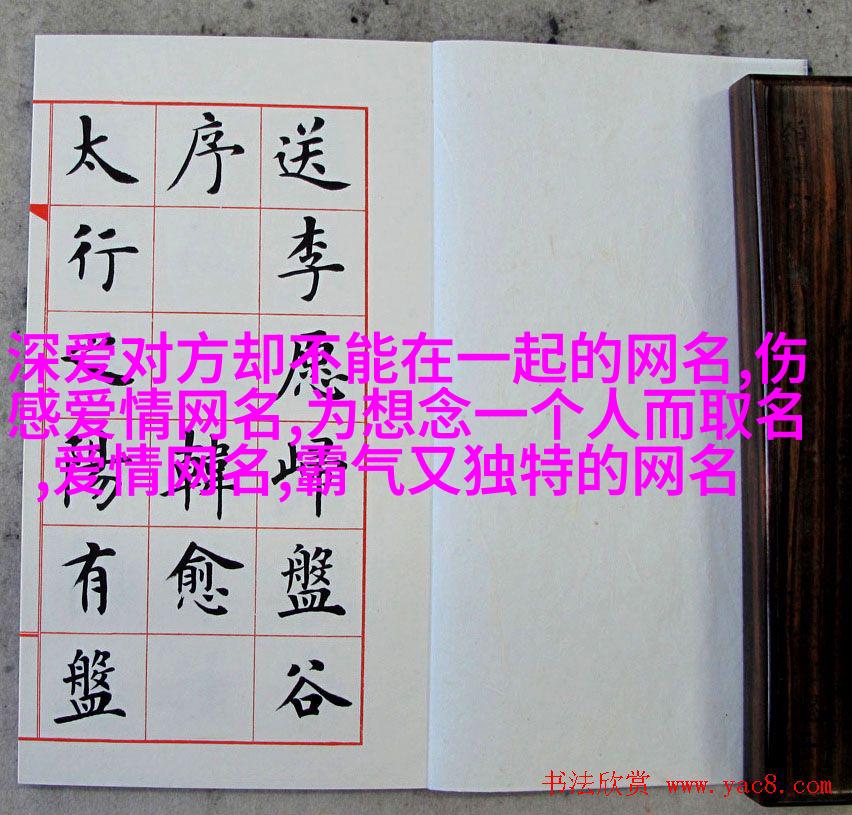 送李愿歸盤谷
序 韓愈
太行之陽有盤
深爱对方却不能在一起的网名,伤
感爱情网名,为想念一个人而取名
,爱情网名,霸气又独特的网名
书法欣赏 www.yac8.com